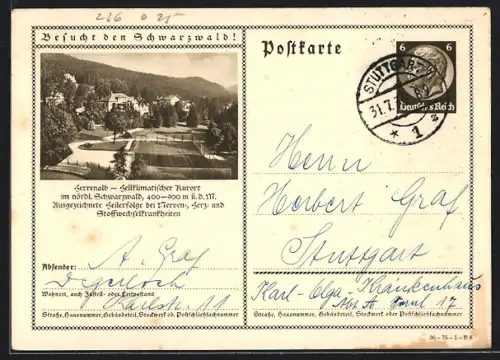 216 0 25
Besucht den Schwarzwald!
Herrenalb — Heilklimatischer Kurort
im nördl. Schwarzwald, 400—900 m ü. d. M.
Ausgezeichnete Heilerfolge bei Nerven-, Herz- und
Stoffwechselkrankheiten
Absender:
A. Graf
Degerloch
Wohnort, auch Zustell- oder Leitpostamt
Karlstr. 11
Straße, Hausnummer, Gebäudeteil, Stockwerk od. Postschließfachnummer
Postkarte
6 6
Deutsches Reich
STUTTGART
31.7.
* 1 z
Herrn
Herbert Graf
Stuttgart
Karl-Olga-Krankenhaus
17
Straße, Hausnummer, Gebäudeteil, Stockwerk oder Postschließfachnummer